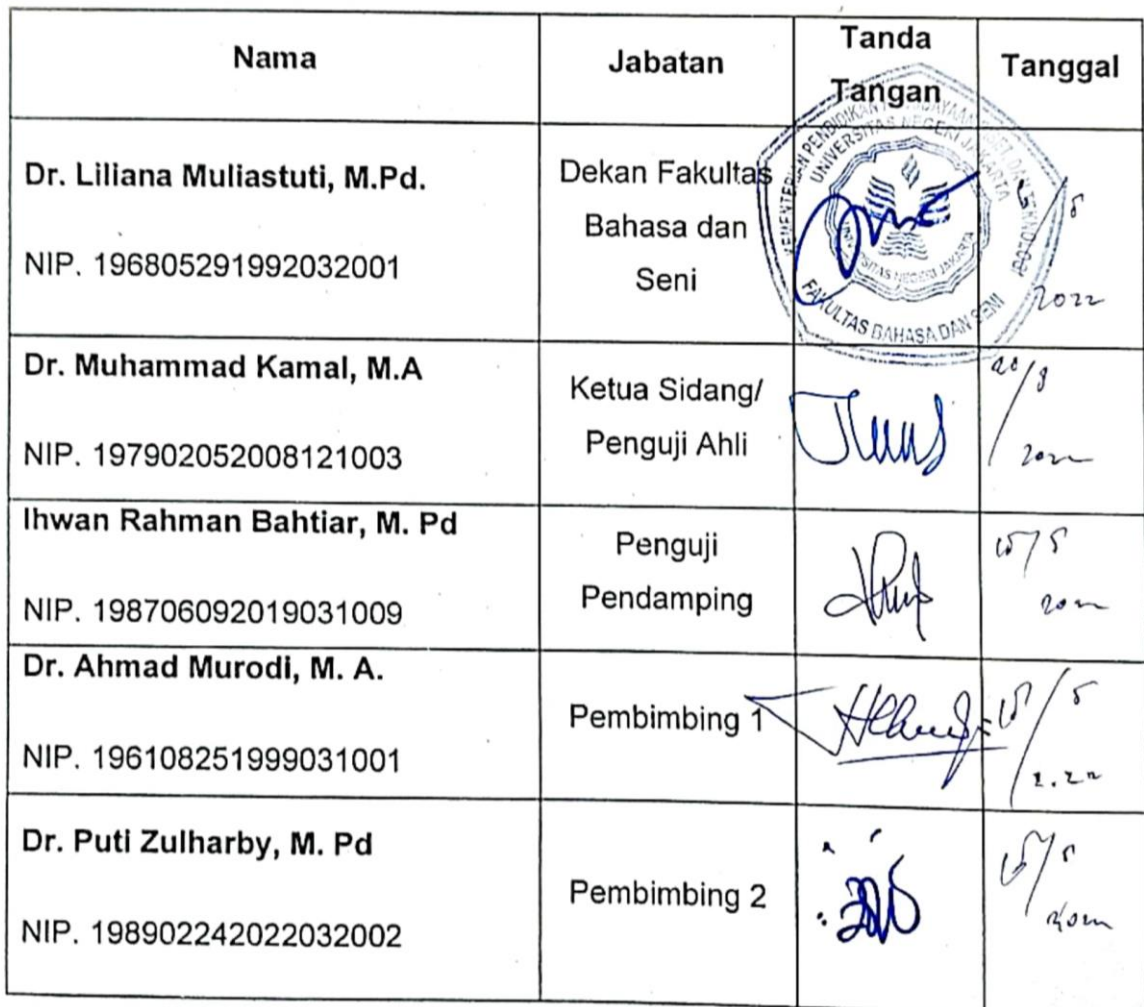 Nama
Jabatan
Tanda
Tangan
Tanggal
Dr. Liliana Muliastuti, M.Pd.
NIP. 196805291992032001
Dekan Fakultas
Bahasa dan
Seni
UNIVERSITAS NEGERI JAKARTA
FAKULTAS BAHASA DAN SENI
2022
Dr. Muhammad Kamal, M.A
NIP. 197902052008121003
Ketua Sidang/
Penguji Ahli
Ihwan Rahman Bahtiar, M. Pd
NIP. 198706092019031009
Penguji
Pendamping
Dr. Ahmad Murodi, M. A.
NIP. 196108251999031001
Pembimbing 1
Dr. Puti Zulharby, M. Pd
NIP. 198902242022032002
Pembimbing 2